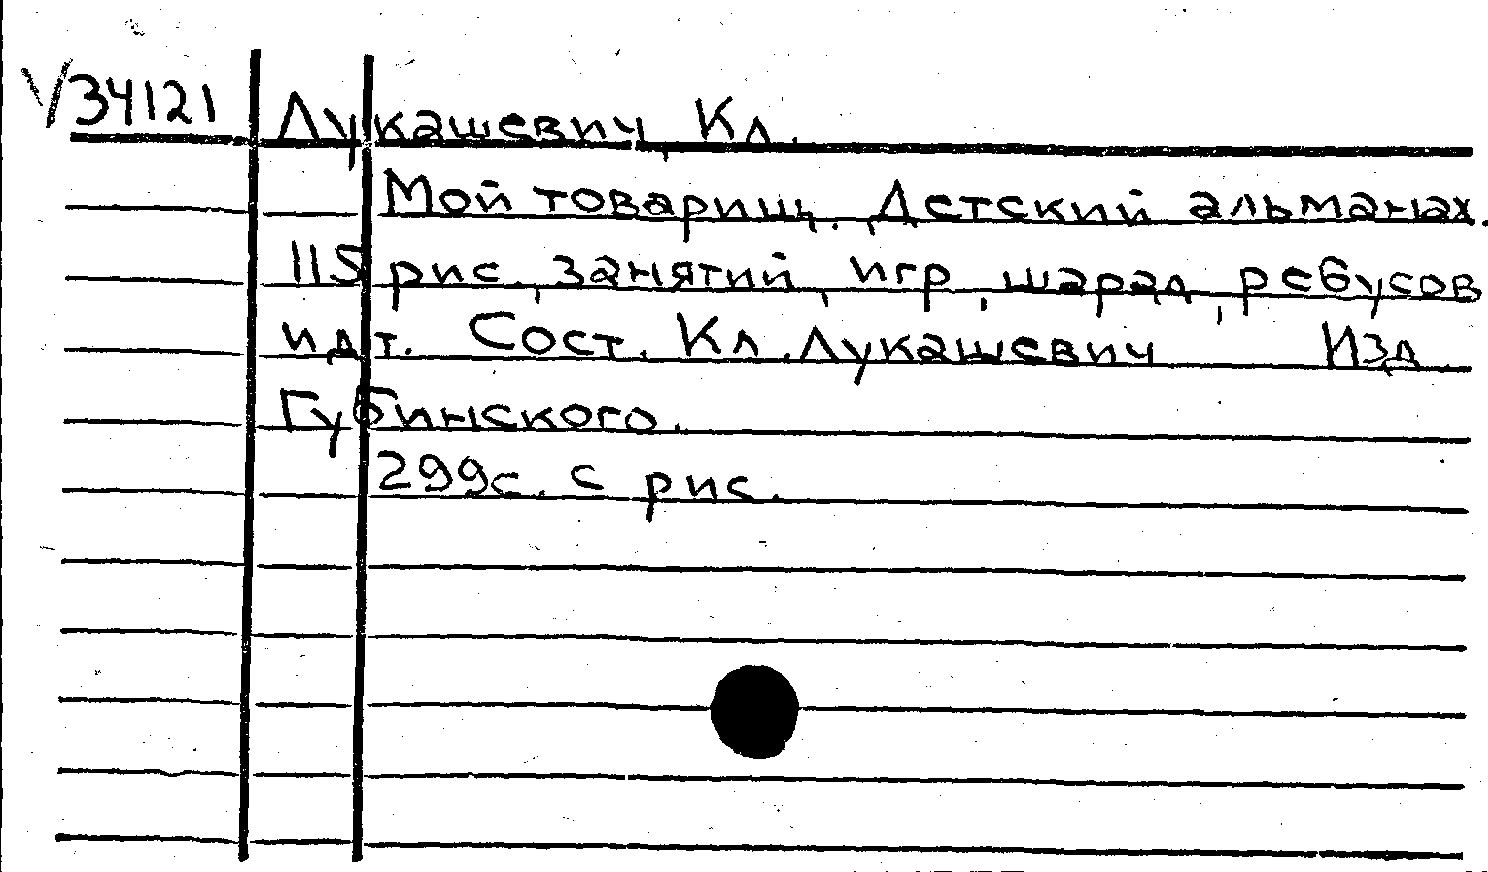 V34121 Лукашевич, Кл.
Мой товарищ. Детский альманах.
115 рис., занятий, игр, шарад, ребусов
и д т. Сост. Кл. Лукашевич Изд
Губинского.
299с. с рис.